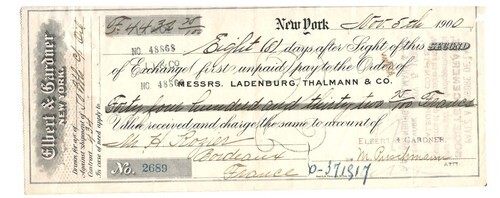 F. 4432 35/100
New York Nov. 8th 1900
No 48868
Eight (8) days after Sight of this SECOND
of Exchange (first unpaid) pay to the Order of
MESSRS. LADENBURG, THALMANN & CO.
Forty four hundred and thirty two 35/100 Francs
Value received and charge the same to account of
Bordeaux
France
ELBERT & GARDNER.
ATTY.
No. 2689
Elbert & Gardner
NEW YORK.
Drawn for a/c of
Against shipment of
Contract
In case of need apply to